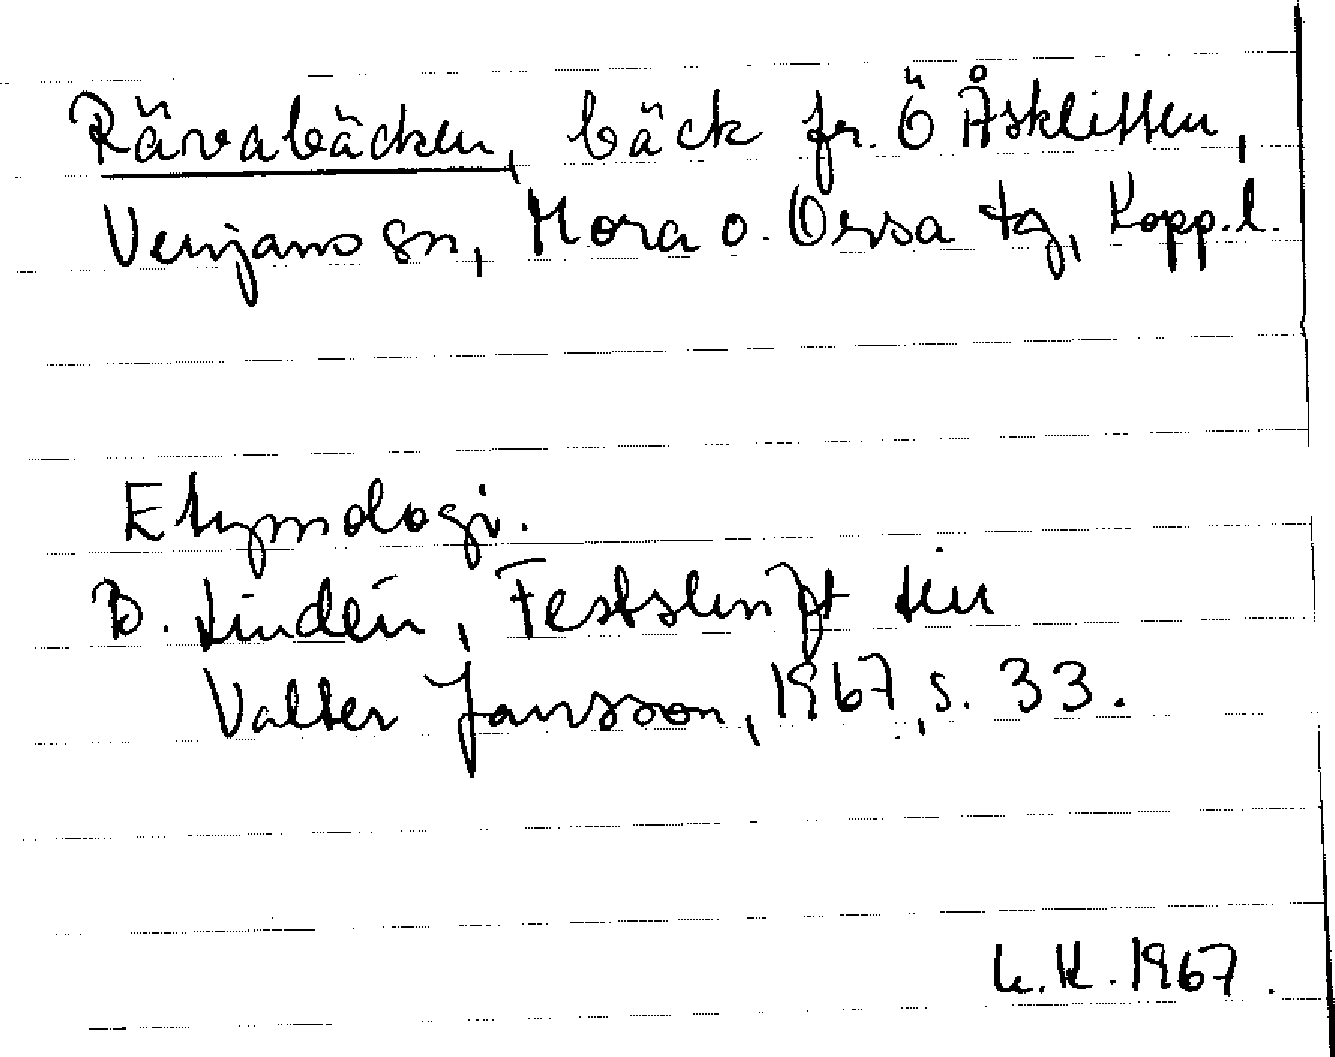 Rävabäcken, bäck fr. Ö Åsklitten,
Venjans sn, Mora o. Orsa tg, Kopp. l.
Etymologi.
B. Lindén, Festskrift till
Valter Jansson, 1967, s. 33.
1967.